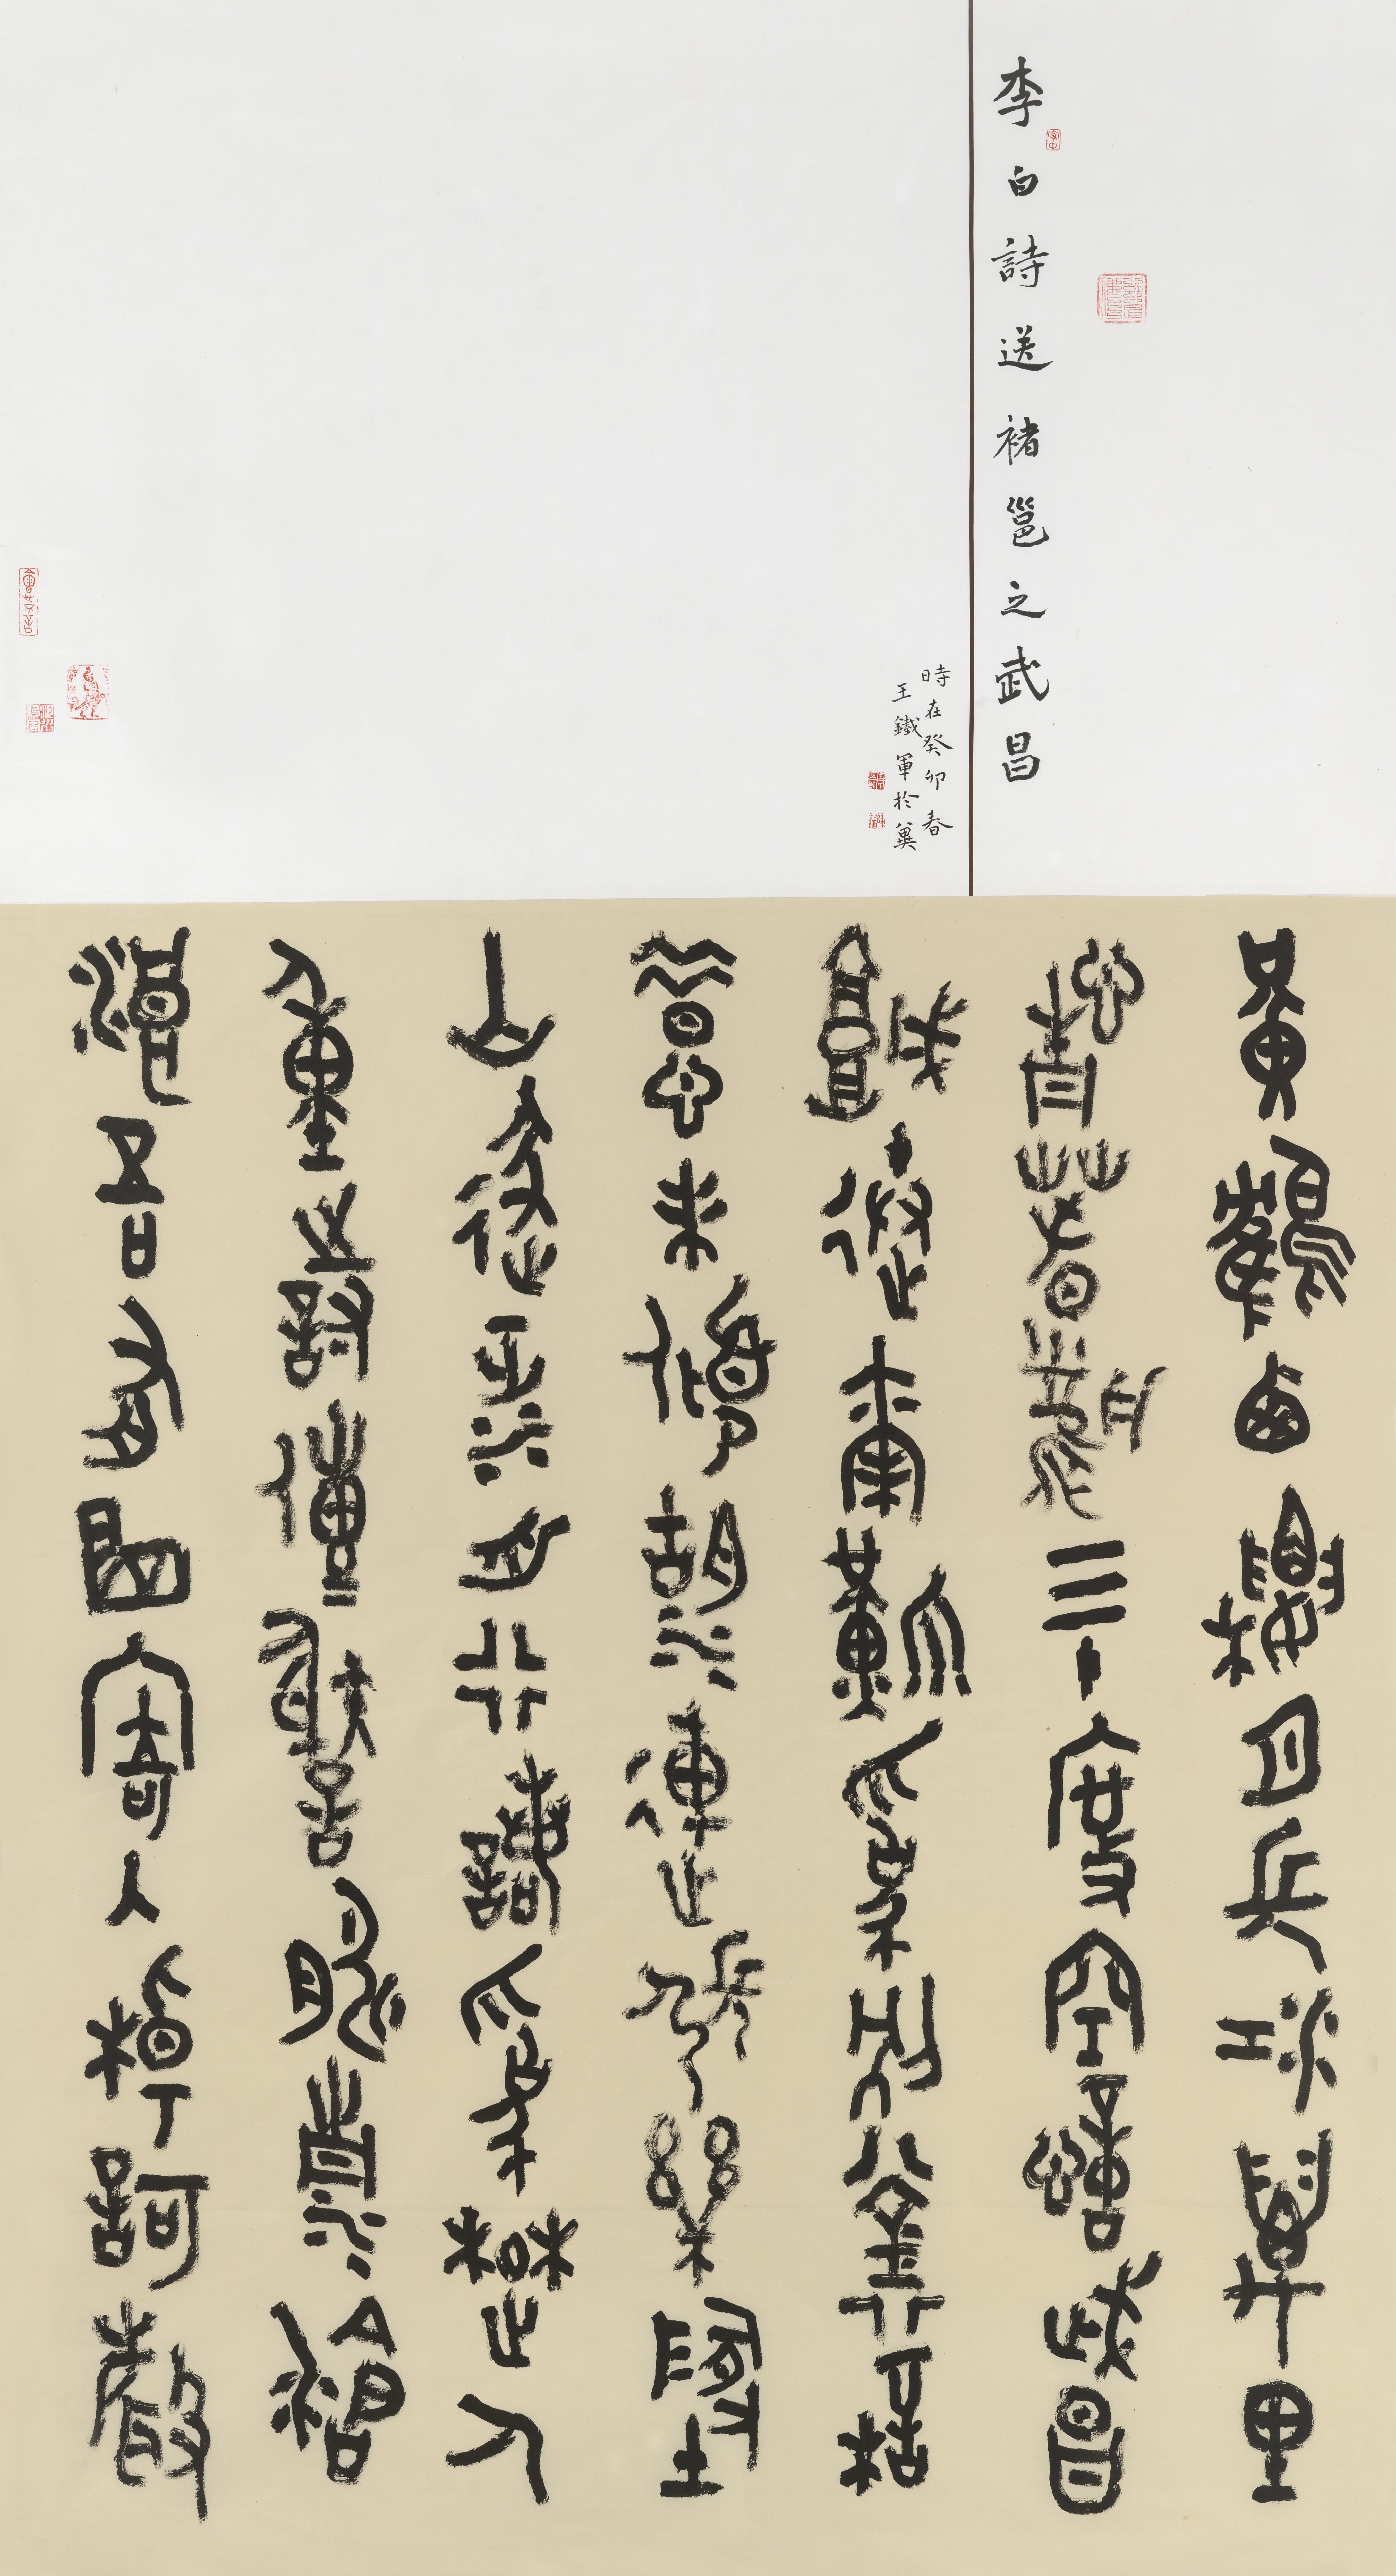 李白詩送褚邕之武昌
時在癸卯春
王鐵軍於冀
黃鶴西樓月長江萬里
情春風三十度空憶武昌
城送爾難為別銜桮
惜未傾湖連張樂地
山逐泛舟行諾為楚人
重詩傳謝朓清滄
浪吾有曲寄入棹歌聲